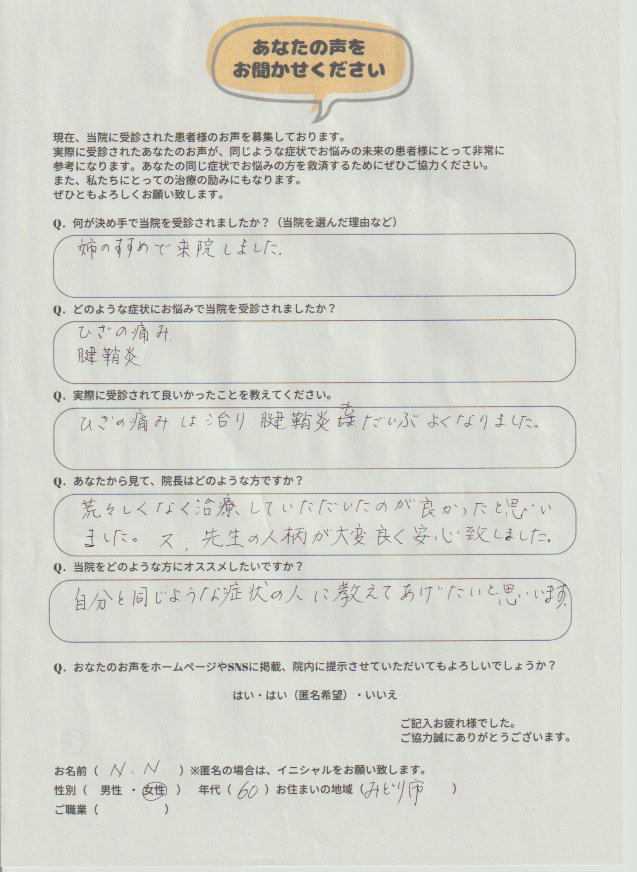 あなたの声を
お聞かせください
現在、当院に受診された患者様のお声を募集しております。
実際に受診されたあなたのお声が、同じような症状でお悩みの未来の患者様にとって非常に
参考になります。あなたの同じ症状でお悩みの方を救済するためにぜひご協力ください。
また、私たちにとっての治療の励みにもなります。
ぜひともよろしくお願い致します。
Q．何が決め手で当院を受診されましたか？（当院を選んだ理由など）
姉のすすめで来院しました。
Q．どのような症状にお悩みで当院を受診されましたか？
ひざの痛み.
腱鞘炎
Q．実際に受診されて良いかったことを教えてください。
ひざの痛みは治り、腱鞘炎もだいぶよくなりました。
Q．あなたから見て、院長はどのような方ですか？
荒々しくなく治療していただいたのが良かったと思い
ました。又、先生の人柄が大変良く安心致しました。
Q．当院をどのような方にオススメしたいですか？
自分と同じような症状の人に教えてあげたいと思います。
Q．おなたのお声をホームページやSNSに掲載、院内に提示させていただいてもよろしいでしょうか？
はい・はい（匿名希望）・いいえ
ご記入お疲れ様でした。
ご協力誠にありがとうございます。
お名前（ N．N ）※匿名の場合は、イニシャルをお願い致します。
性別（ 男性 ・ 女性 ） 年代（ 60 ）お住まいの地域（みどり市 ）
ご職業（ ）